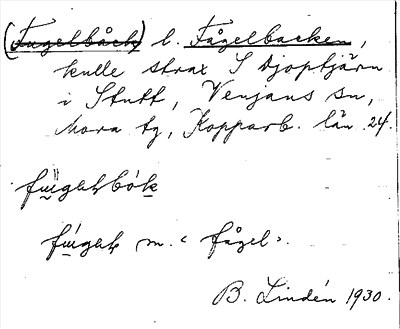 (Fugelbåck) l. Fågelbacken,
kulle strax S Djoptjärn
i Stutt, Venjans sn,
Mora tg, Kopparb. län. 24.
fùgəḷbók
fúgəḷ m. "fågel".
B. Lindén 1930.